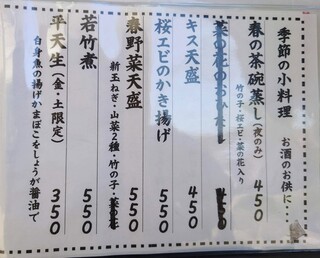 季節の小料理
お酒のお供に…
春の茶碗蒸し(夜のみ) 450
竹の子・桜エビ・菜の花入り
菜の花のおひたし 450
キス天盛 450
桜エビのかき揚げ 550
春野菜天盛 550
新玉ねぎ・山菜2種・竹の子・菜の花
若竹煮 550
平天生(金・土限定) 350
白身魚の揚げかまぼこをしょうが醤油で